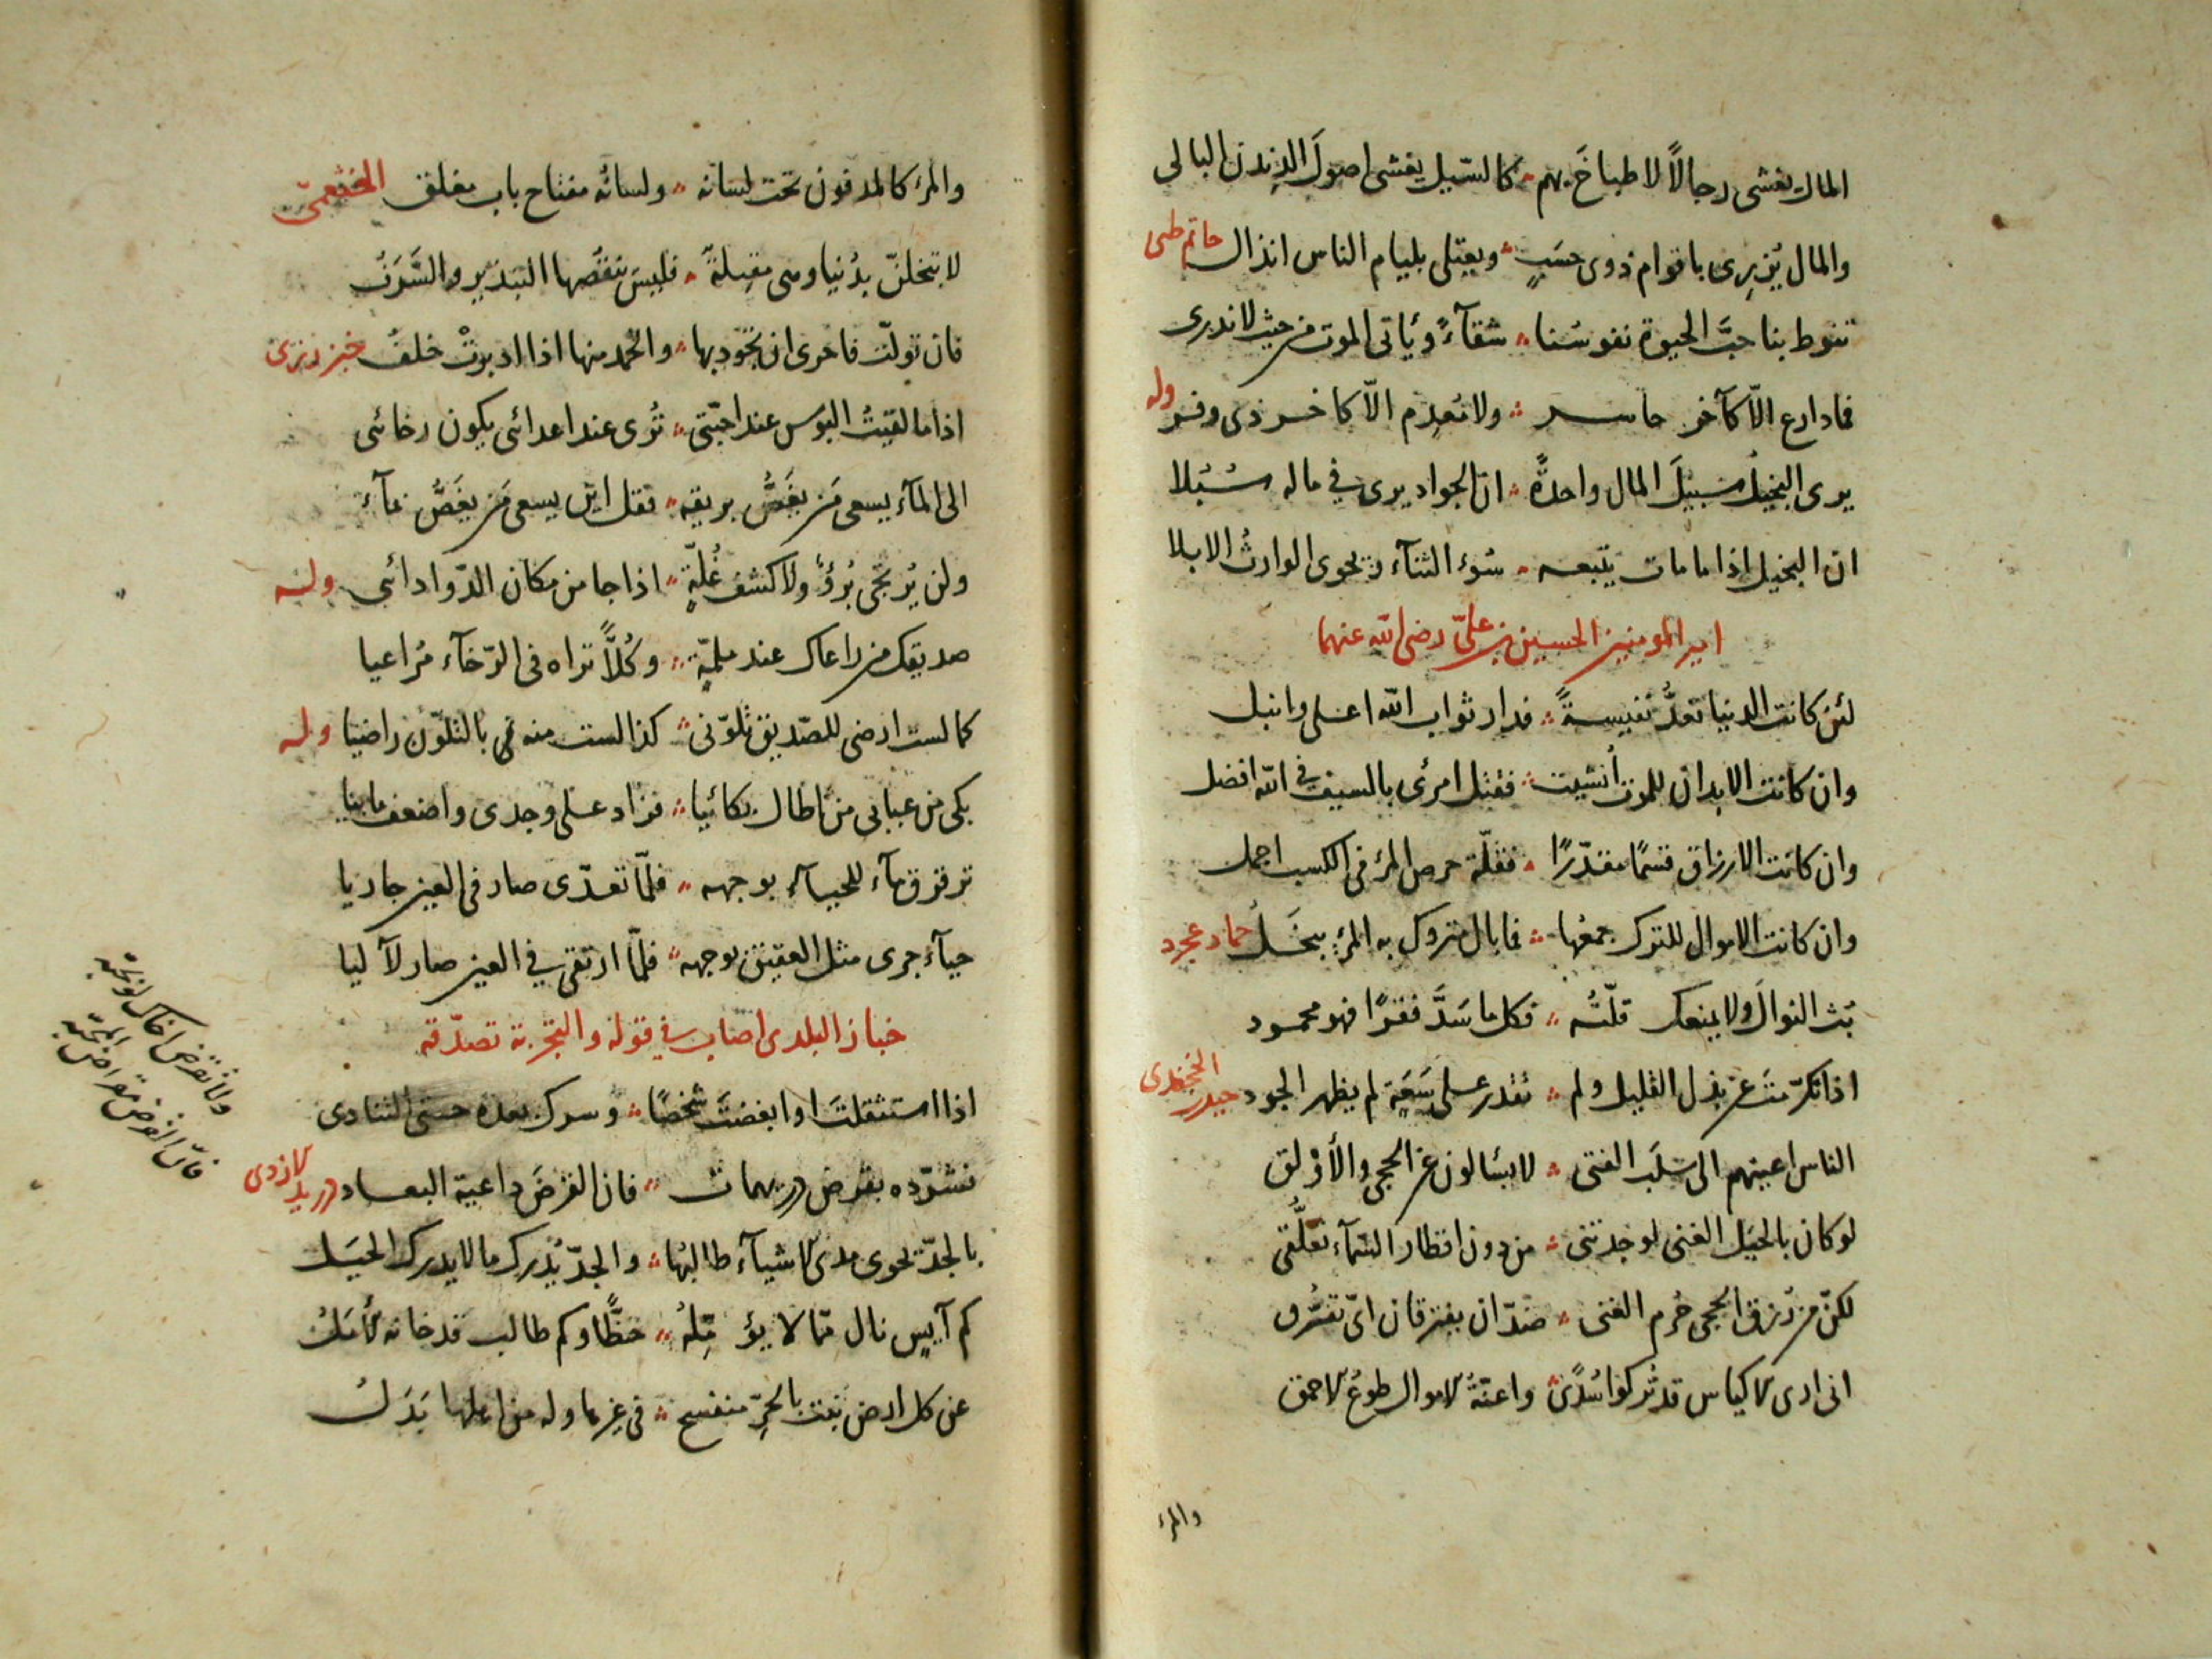 المال يغشى رجالاً لا طباخَ بهم ؞ كالسّيل يغشى اصولَ الدِندن البالى
والمال يُزرِى باقوام ذوى حسَبٍ ؞ ويعتلى بليام الناس انذال حاتم طى
تنوط بنا حبَّ الحيوة نفوسُنا ؞ شقآءً ويأتى الموت من حيث لا ندرى
فما دارع الّا كآخر حاسر ؞ ولا مُعدِم الّا كاخر ذى وفر وله
يرى البخيل سبيلَ المال واحدةً ؞ ان الجواد يرى فى ماله سُبُلا
ان البخيل اذا ما مات يتبعه ؞ سُوء الثنآء ويحوى الوارثُ الابلا
امير المومنين الحسين بن علىّ رضى الله عنهما
لئن كانت الدنيا تعدُّ نفيسةً ؞ فدار ثواب الله اعلى وانبل
وان كانت الابدان للموت اُنشيت ؞ فقتل امرئ بالسيف فى الله افضل
وان كانت الارزاق قسمًا مقدّرًا ؞ فقلّة حرص المرء فى الكسب اجمل
وان كانت الاموال للترك جمعُها ؞ فما بال متروك به المرء يبخَلُ حماد عجرد
بُث النوالَ ولا يمنعك قلّتُه ؞ فكل ما سَدَّ فقرًا فهو محمود
اذا تكرّمتَ عن بذل القليل ولم ؞ تقدر على سَعَةٍ لم يظهر الجود حيدر الخجندى
الناس اعينهم الى سَلَب الفتى ؞ لا يسٔالون عن الحجى والأولق
لو كان بالحيَل الغنى لوجدتنى ؞ من دون اقطار السّمآء تعلُّقى
لكنّ من رُزق الحجى حُرم الغنى ؞ ضدّان يفترقان اىّ تفرُّق
انى ارى الاكياس قد تُركوا سُدًى ؞ واعنّةُ الاموال طوعُ الاحمق
والمرء
والمرء كالمدفون تحت لسانه ؞ ولسانُه مفتاح باب مغلق الخثعمىّ
لا تبخلنّ بدُنيا وهى مقبلةٌ ؞ فليسَ ينقُصها التبذير والسَّرَفُ
فان تولّت فاحرى ان تجُود بها ؞ والحمد منها اذا ادبرتْ خلفُ خبزرزى
اذا ما لقيتُ البؤس عند احبّتى ؞ تُرى عند اعدائى يكون رخائى
الى المآء يسعى مَن يغَصُّ بريقه ؞ فقل اين يسعى مَن يغَصُّ بمآء
ولن يُرتجَى بُرؤٌ ولا كشف غُلّةٍ ؞ اذا جا من مكان الدّوا دائى وله
صديقك من راعاك عند ملمّةٍ ؞ وكُلًّا تراه فى الرّخآء مُراعيا
كما لست ارضى للصّديق تلوّنى ؞ كذا لست منه بالتلوّن راضيا وله
بكى من عبابى من اطال بكائيا ؞ فزاد على وجدى واضعف ما بيا
ترقرق مآء للحيآء بوجهه ؞ فلمّا تعدّى صار فى العين جاريا
حيآء جرى مثل العقيق بوجهه ؞ فلمّا ارتقى فى العين صار لآليا
خباز البلدى اصاب فى قوله والتجربة تصدّقه
اذا استثقلتَ او ابغضتَ شخصًا ؞ وسرك بعده حتى التنادى
فشرّده بقرض دريهمات ؞ فان القرضَ داعية البعاد دريد الازدى
بالجدّ تحوى مدى الاشيآء طالبُها ؞ والجدّ يُدرك ما لا يدرك الحيَل
كم آيسٍ نال ممّا لا يؤمّلهُ ؞ حظًّا وكم طالب قد خانه الأملُ
عن كل ارض نبت بالحُرّ منفسح ؞ فى غيرها وله من اهلها بَدَلُ
ولا تقرض اخاك
فانّ القرض مقراض المحبّه